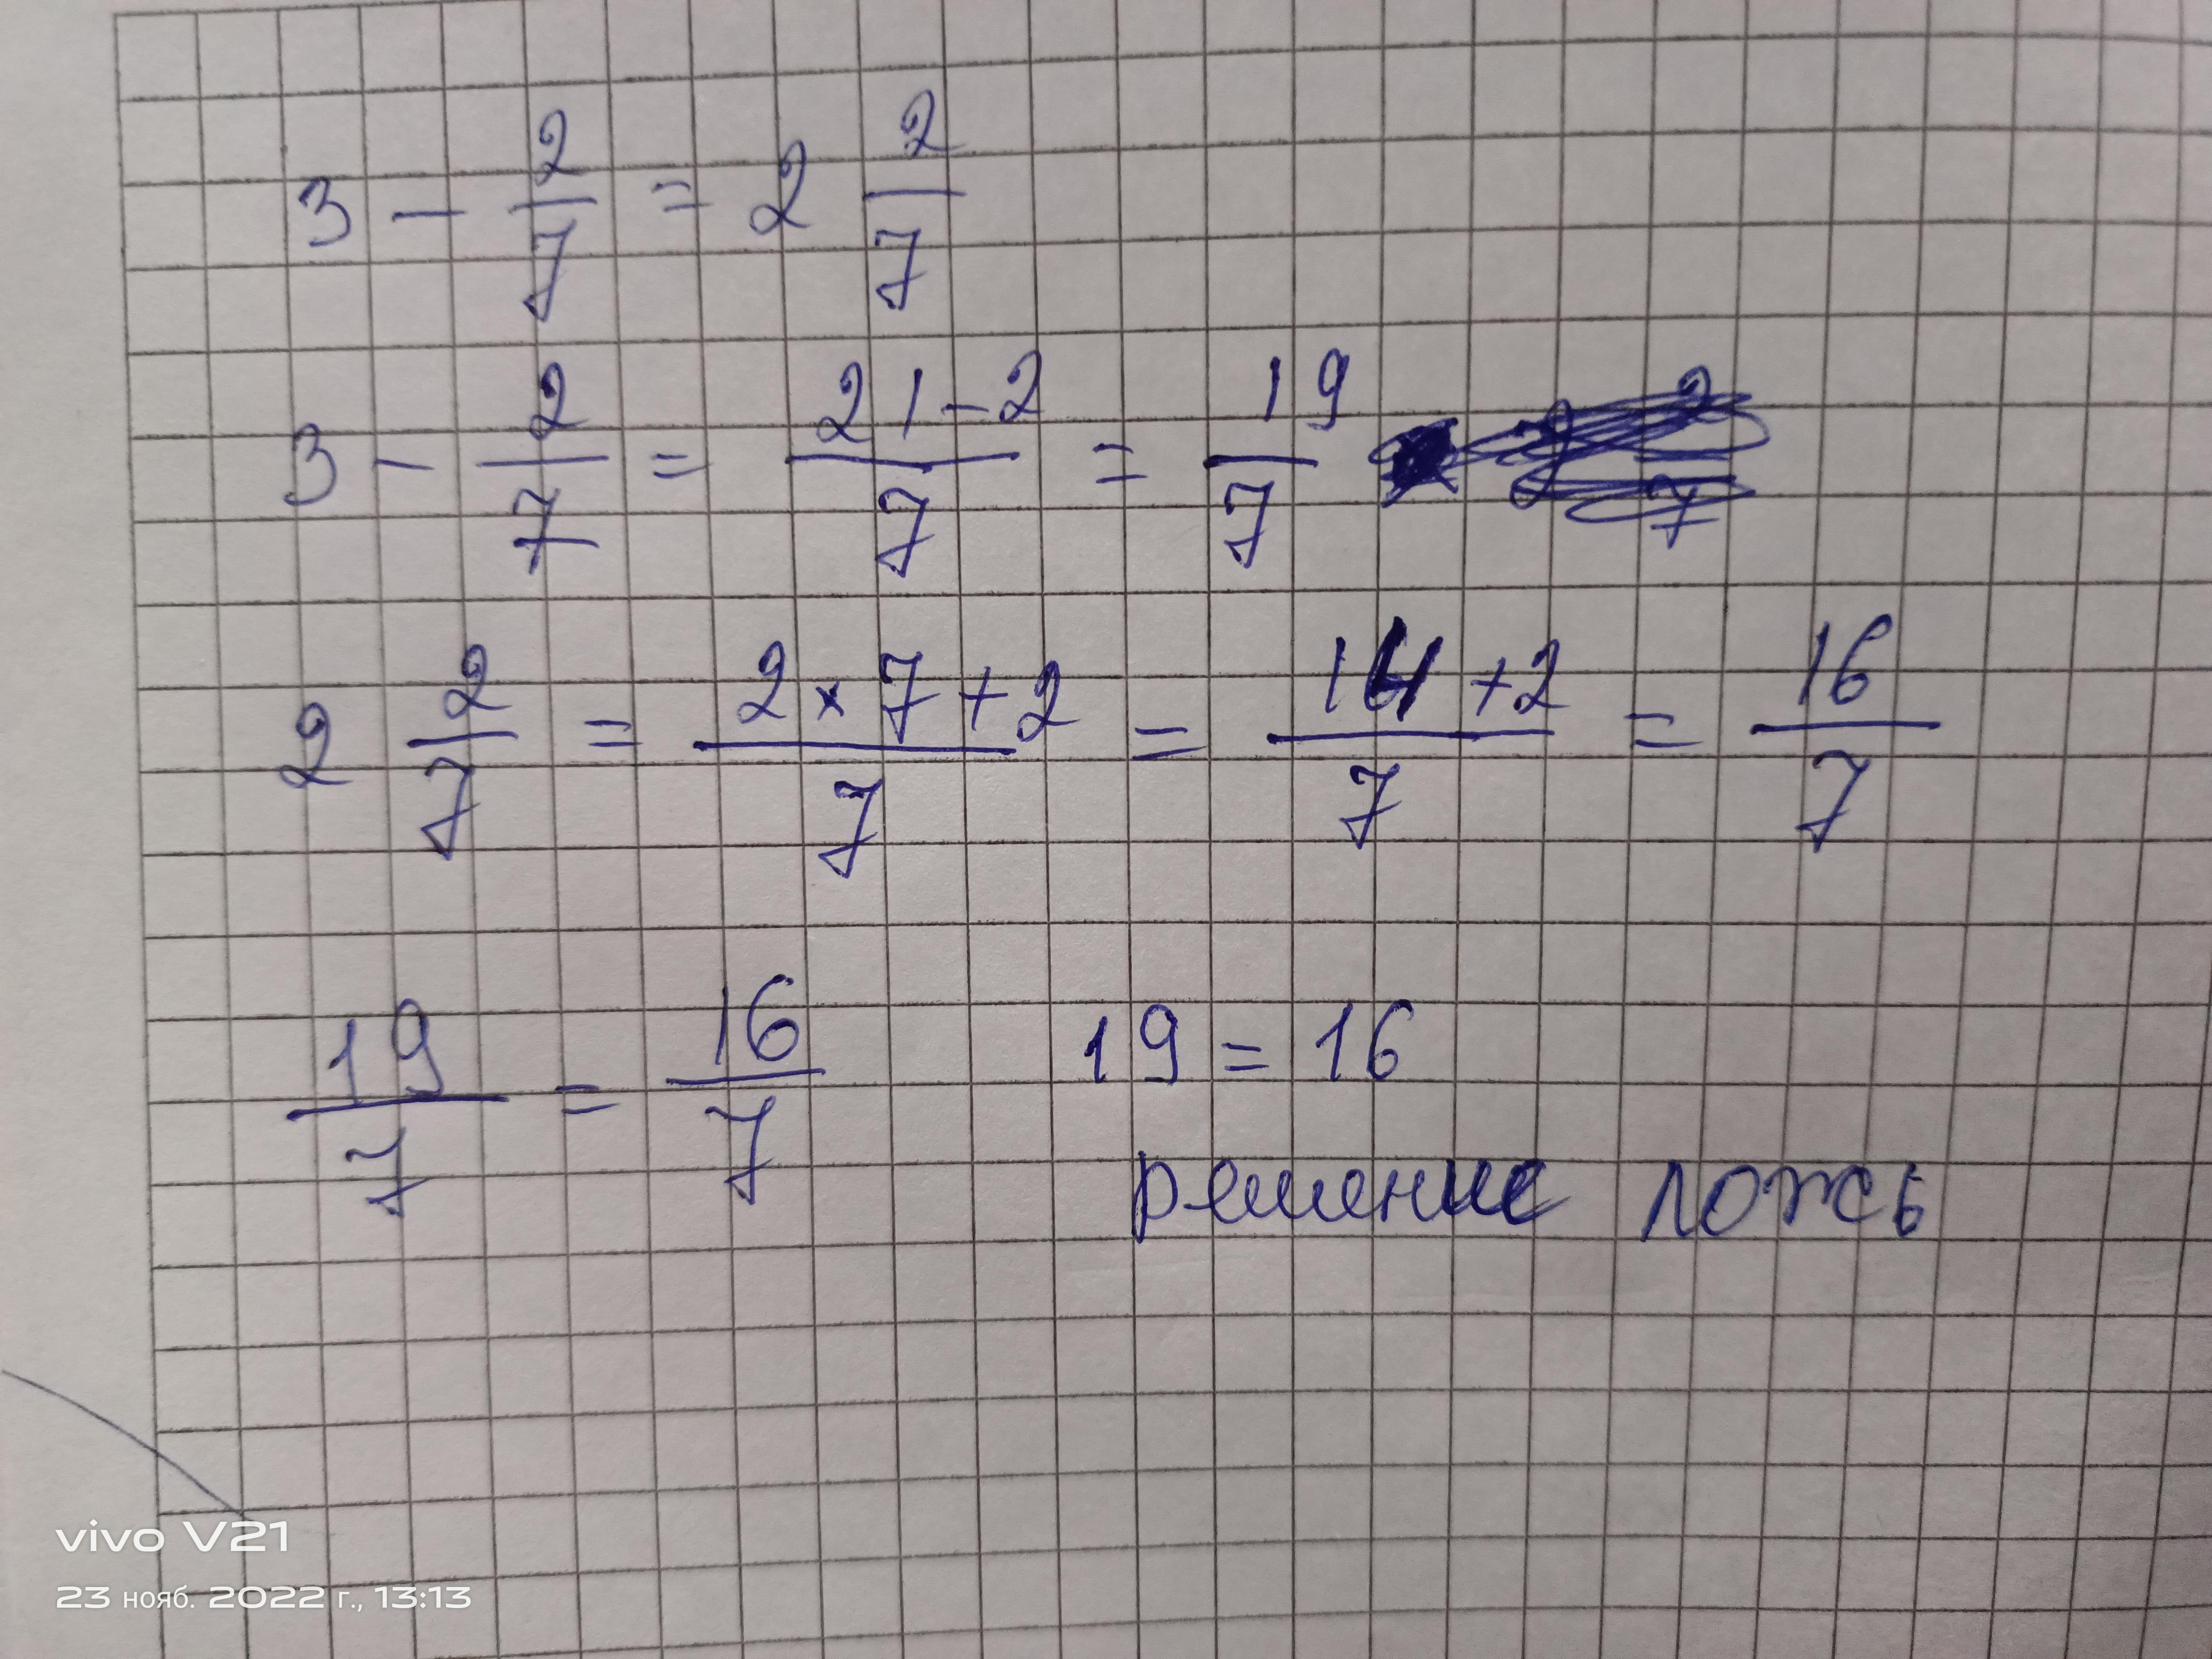 3 - 2/7 = 2 2/7
3 - 2/7 = 21-2/7 = 19/7
2 2/7 = 2 × 7 + 2/7 = 14 + 2/7 = 16/7
19/7 = 16/7 19 = 16
решение ложь
vivo V21
23 нояб. 2022 г., 13:13